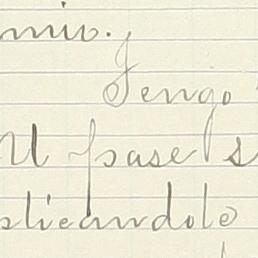 mio.
Tengo
U pase s
plicandole